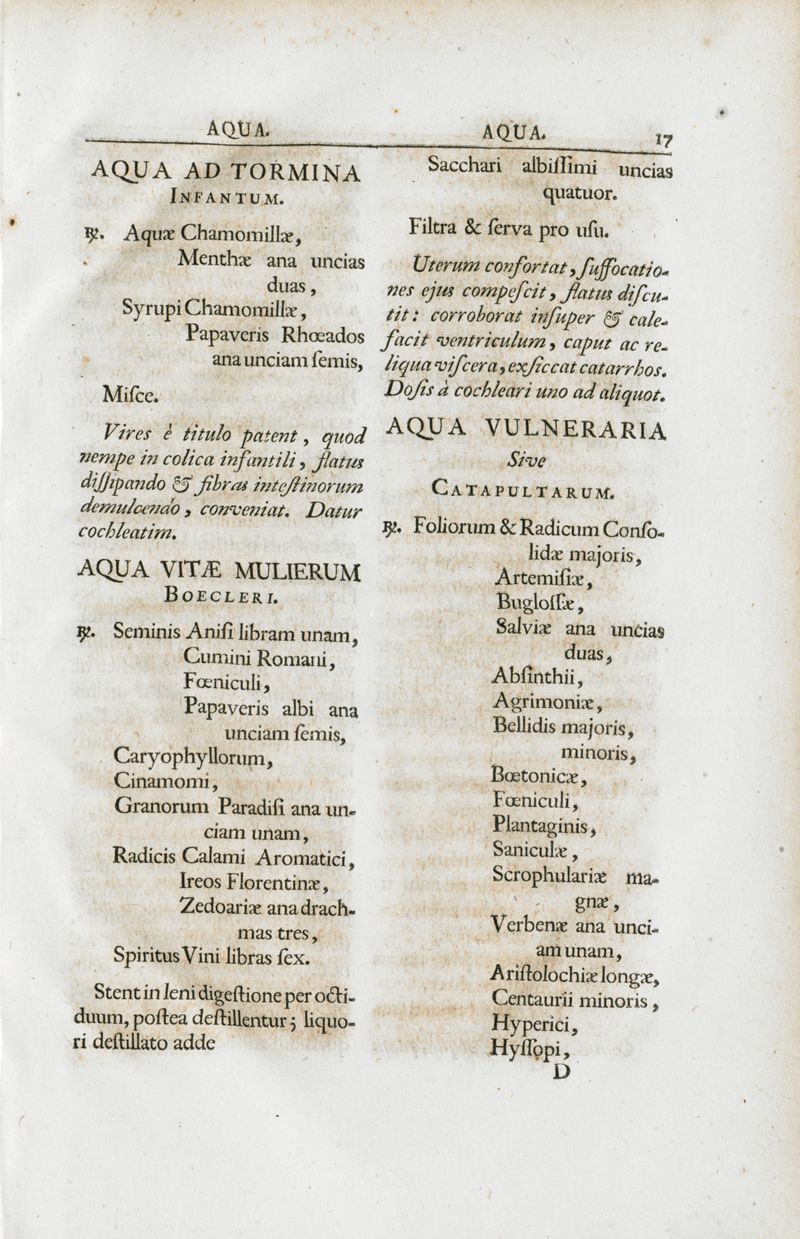 AQUA.
AQUA AD TORMINA
INFANTUM.
℞. Aquæ Chamomillæ,
Menthæ ana uncias
duas,
Syrupi Chamomillæ,
Papaveris Rhœados
ana unciam ſemis,
Miſce.
Vires è titulo patent, quod
nempe in colica infantili, flatus
diſſipando & fibras inteſtinorum
demulcendo, conveniat. Datur
cochleatim.
AQUA VITÆ MULIERUM
BOECLERI.
℞. Seminis Aniſi libram unam,
Cumini Romani,
Fœniculi,
Papaveris albi ana
unciam ſemis,
Caryophyllorum,
Cinamomi,
Granorum Paradiſi ana un-
ciam unam,
Radicis Calami Aromatici,
Ireos Florentinæ,
Zedoariæ ana drach-
mas tres,
Spiritus Vini libras ſex.
Stent in leni digeſtione per octi-
duum, poſtea deſtillentur; liquo-
ri deſtillato adde
AQUA. 17
Sacchari albiſſimi uncias
quatuor.
Filtra & ſerva pro uſu.
Uterum confortat, ſuffocatio-
nes ejus compeſcit, flatus diſcu-
tit: corroborat inſuper & cale-
facit ventriculum, caput ac re-
liqua viſcera, exſiccat catarrhos.
Doſis à cochleari uno ad aliquot.
AQUA VULNERARIA
Sive
CATAPULTARUM.
℞. Foliorum & Radicum Conſo-
lidæ majoris,
Artemiſiæ,
Bugloſſæ,
Salviæ ana uncias
duas,
Abſinthii,
Agrimoniæ,
Bellidis majoris,
minoris,
Bœtonicæ,
Fœniculi,
Plantaginis,
Saniculæ,
Scrophulariæ ma-
gnæ,
Verbenæ ana unci-
am unam,
Ariſtolochiæ longæ,
Centaurii minoris,
Hyperici,
Hyſſopi,
D